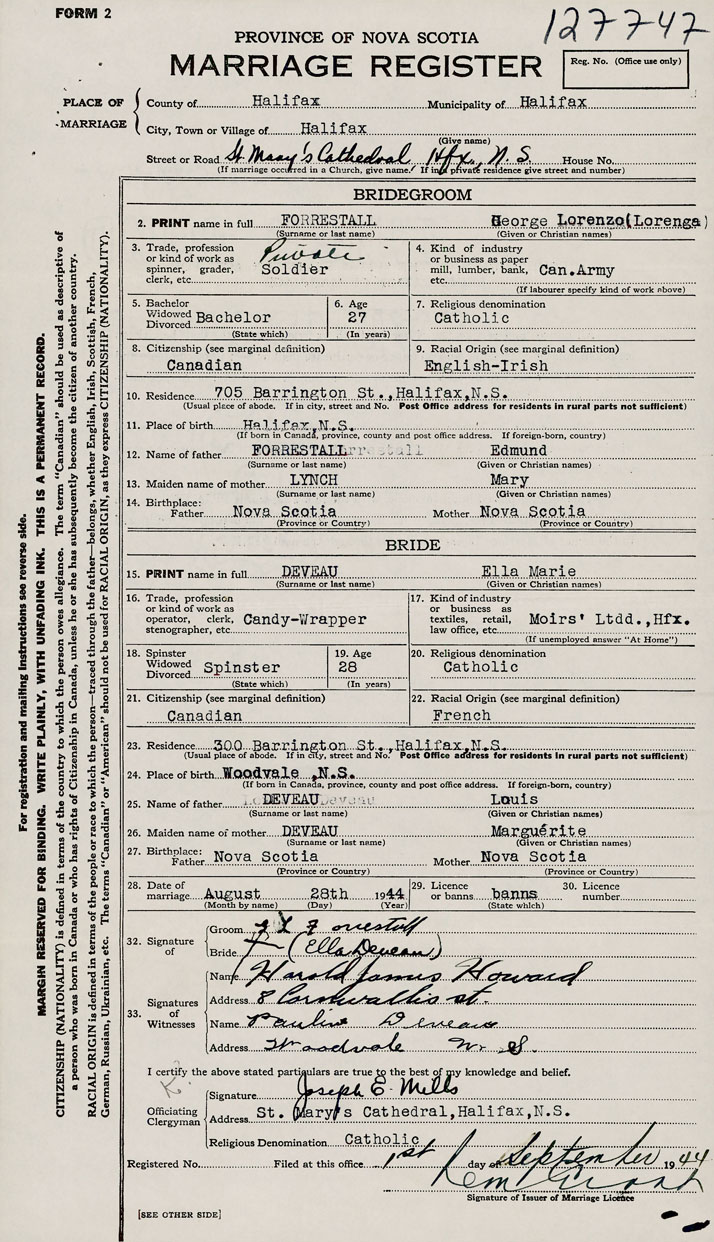 FORM 2
127747
PROVINCE OF NOVA SCOTIA
MARRIAGE REGISTER
Reg. No. (Office use only)
PLACE OF MARRIAGE
County of Halifax Municipality of Halifax
City, Town or Village of Halifax
(Give name)
Street or Road St. Mary's Cathedral Hfx, N.S. House No.
(If marriage occurred in a Church, give name. If in a private residence give street and number)
BRIDEGROOM
2. PRINT name in full FORRESTALL George Lorenzo(Lorenga)
(Surname or last name) (Given or Christian names)
3. Trade, profession or kind of work as spinner, grader, clerk, etc. Private Soldier
4. Kind of industry or business as paper mill, lumber, bank, etc. Can.Army
(If labourer specify kind of work above)
5. Bachelor Widowed Divorced Bachelor
(State which)
6. Age 27
(In years)
7. Religious denomination
Catholic
8. Citizenship (see marginal definition)
Canadian
9. Racial Origin (see marginal definition)
English-Irish
10. Residence 705 Barrington St.,Halifax,N.S.
(Usual place of abode. If in city, street and No. Post Office address for residents in rural parts not sufficient)
11. Place of birth Halifax,N.S.
(If born in Canada, province, county and post office address. If foreign-born, country)
12. Name of father FORRESTALL Edmund
(Surname or last name) (Given or Christian names)
13. Maiden name of mother LYNCH Mary
(Surname or last name) (Given or Christian names)
14. Birthplace:
Father Nova Scotia Mother Nova Scotia
(Province or Country) (Province or Country)
BRIDE
15. PRINT name in full DEVEAU Ella Marie
(Surname or last name) (Given or Christian names)
16. Trade, profession or kind of work as operator, clerk, stenographer, etc. Candy-Wrapper
17. Kind of industry or business as textiles, retail, law office, etc. Moirs' Ltdd.,Hfx.
(If unemployed answer "At Home")
18. Spinster Widowed Divorced Spinster
(State which)
19. Age 28
(In years)
20. Religious denomination
Catholic
21. Citizenship (see marginal definition)
Canadian
22. Racial Origin (see marginal definition)
French
23. Residence 300 Barrington St.,Halifax,N.S.
(Usual place of abode. If in city, street and No. Post Office address for residents in rural parts not sufficient)
24. Place of birth Woodvale ,N.S.
(If born in Canada, province, county and post office address. If foreign-born, country)
25. Name of father DEVEAU Louis
(Surname or last name) (Given or Christian names)
26. Maiden name of mother DEVEAU Marguérite
(Surname or last name) (Given or Christian names)
27. Birthplace:
Father Nova Scotia Mother Nova Scotia
(Province or Country) (Province or Country)
28. Date of marriage August 28th 1944
(Month by name) (Day) (Year)
29. Licence or banns banns
(State which)
30. Licence number
32. Signature of
Groom
Bride (Ella Deveau)
33. Signatures of Witnesses
Name Harold James Howard
Address 8 Cornwallis st.
Name Pauline Deveau
Address Woodvale N. S.
I certify the above stated particulars are true to the best of my knowledge and belief.
Officiating Clergyman
Signature Joseph E. Mills
Address St. Mary's Cathedral,Halifax,N.S.
Religious Denomination Catholic
Registered No. Filed at this office 1st day of September 1944
Signature of Issuer of Marriage Licence
[SEE OTHER SIDE]
For registration and mailing instructions see reverse side.
MARGIN RESERVED FOR BINDING. WRITE PLAINLY, WITH UNFADING INK. THIS IS A PERMANENT RECORD.
CITIZENSHIP (NATIONALITY) is defined in terms of the country to which the person owes allegiance. The term "Canadian" should be used as descriptive of
a person who was born in Canada or who has rights of Citizenship in Canada, unless he or she has subsequently become the citizen of another country.
RACIAL ORIGIN is defined in terms of the people or race to which the person—traced through the father—belongs, whether English, Irish, Scottish, French,
German, Russian, Ukrainian, etc. The terms "Canadian" or "American" should not be used for RACIAL ORIGIN, as they express CITIZENSHIP (NATIONALITY).